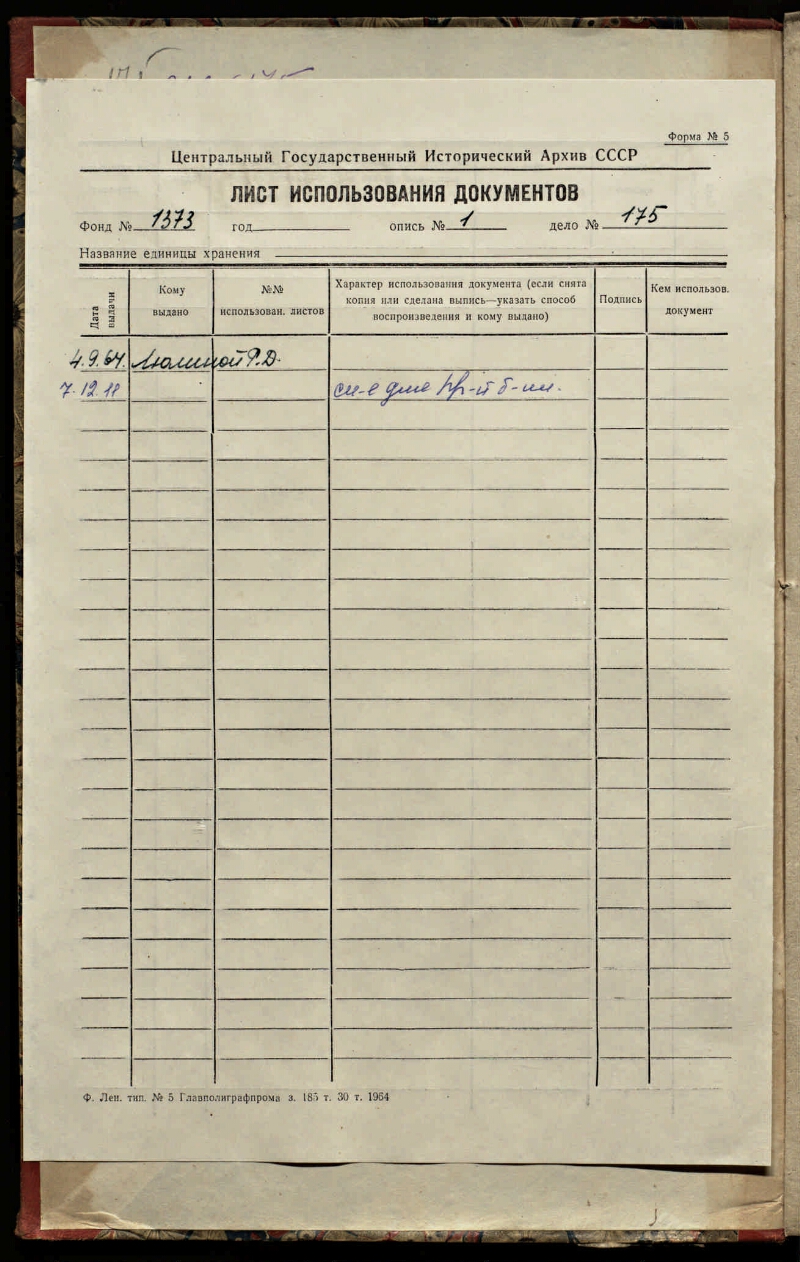 Форма № 5
Центральный Государственный Исторический Архив СССР
ЛИСТ ИСПОЛЬЗОВАНИЯ ДОКУМЕНТОВ
Фонд № 1373 год опись № 1 дело № 175
Название единицы хранения
Дата выдачи
Кому выдано
№№ использован. листов
Характер использования документа (если снята копия или сделана выпись—указать способ воспроизведения и кому выдано)
Подпись
Кем использов. документ
4.9.64.
7.12.11
Ф. Лен. тип. № 5 Главполиграфпрома з. 185 т. 30 т. 1964